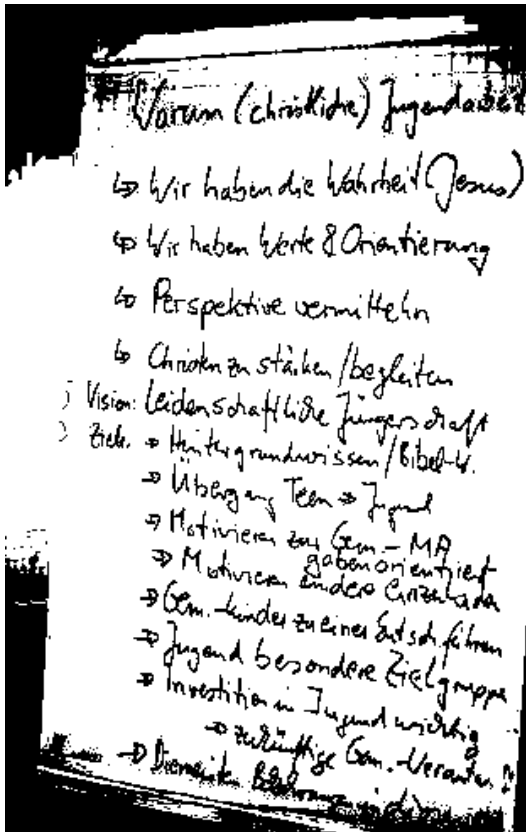 Warum (christliche) Jugendarbeit
↳ Wir haben die Wahrheit (Jesus)
↳ Wir haben Werte & Orientierung
↳ Perspektive vermitteln
↳ Christen zu stärken / begleiten
Vision: Leidenschaftliche Jüngerschaft
Ziele: → Hintergrundwissen / Bibel-W.
→ Übergang Teen → Jugend
→ Motivieren zur Gem.-MA
gabenorientiert
→ Motivieren andere
→ Gem.-kinder zu einer Entsch. führen
→ Jugend besondere Zielgruppe
→ Investition in Jugend wichtig
→ zukünftige Gem.-Verantw. !!
→ Die meisten Bekehrungen